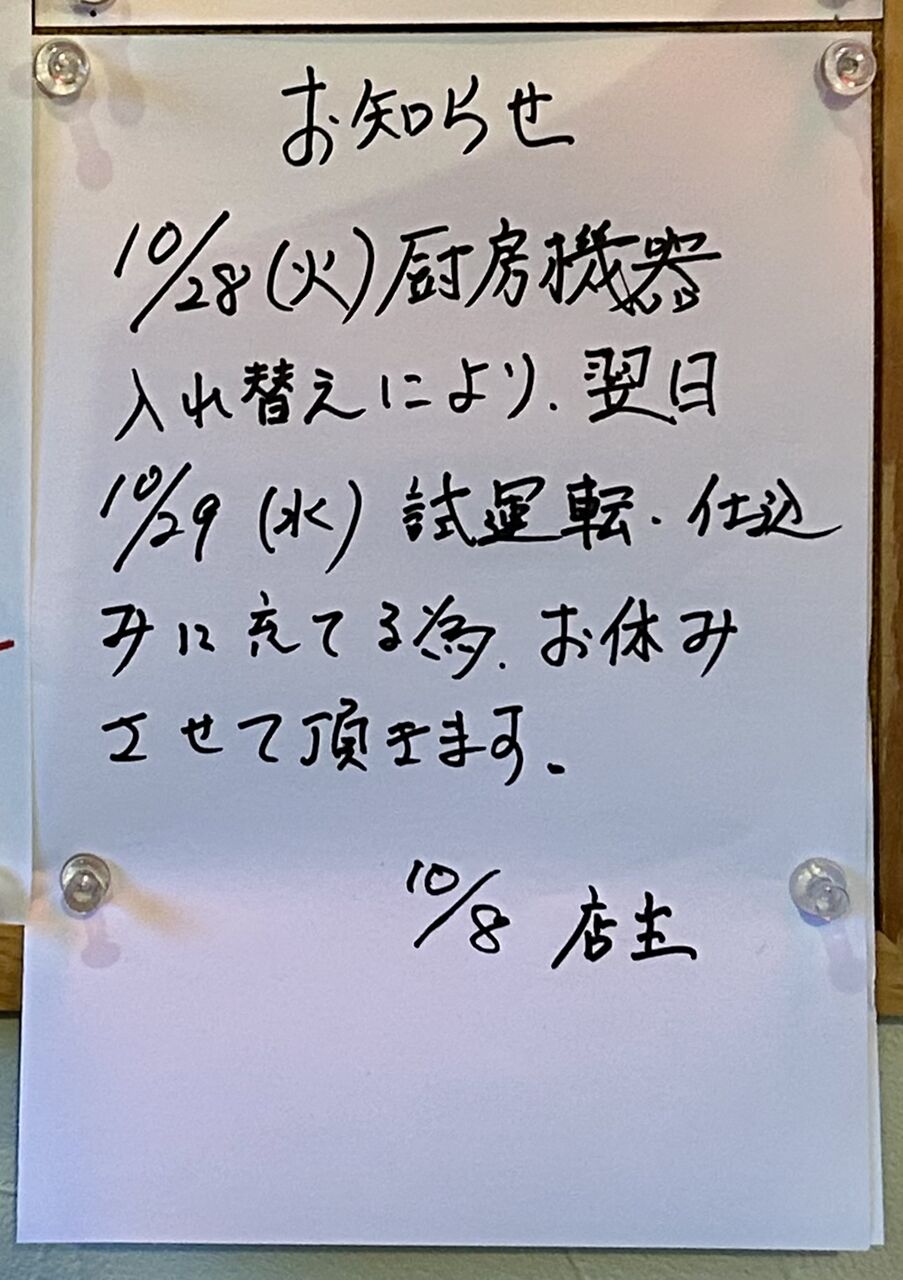 お知らせ
10/28(火)厨房機器
入れ替えにより、翌日
10/29(水)試運転・仕込
みに充てる為、お休み
させて頂きます。
10/8 店主